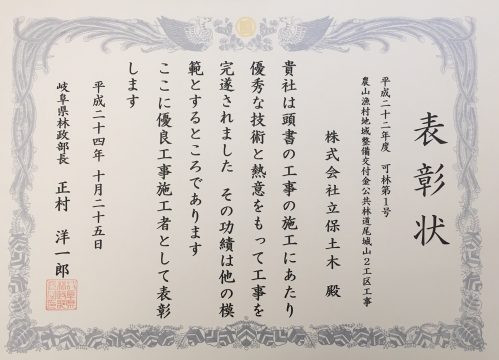 表彰状
平成二十二年度 可林第1号
農山漁村地域整備交付金公共林道尾城山2工区工事
株式会社立保土木 殿
貴社は頭書の工事の施工にあたり
優秀な技術と熱意をもって工事を
完遂されました その功績は他の模
範とするところであります
ここに優良工事施工者として表彰
します
平成二十四年 十月二十五日
岐阜県林政部長 正村 洋一郎